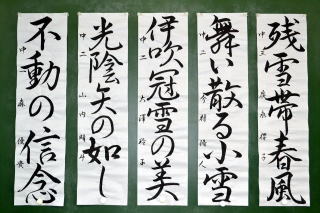 残雪帯春風
中三
舞い散る小雪
中二
伊吹冠雪の美
中二
光陰矢の如し
中二 山内
不動の信念
中 森